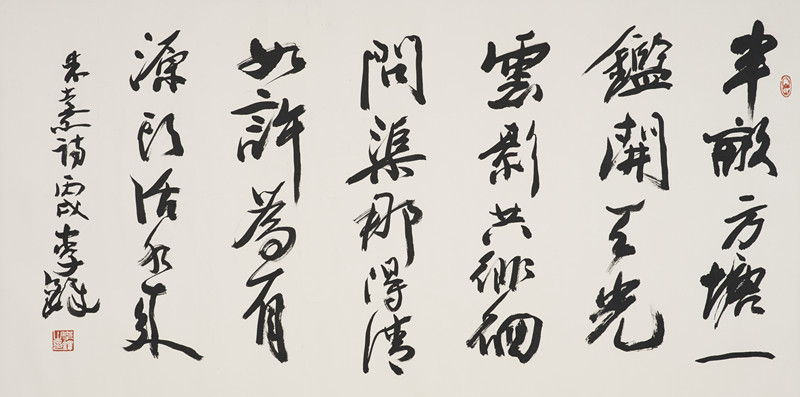 半畝方塘一
鑑開天光
雲影共徘徊
問渠那得清
如許為有
源頭活水來
朱熹詩丙戌李鐸